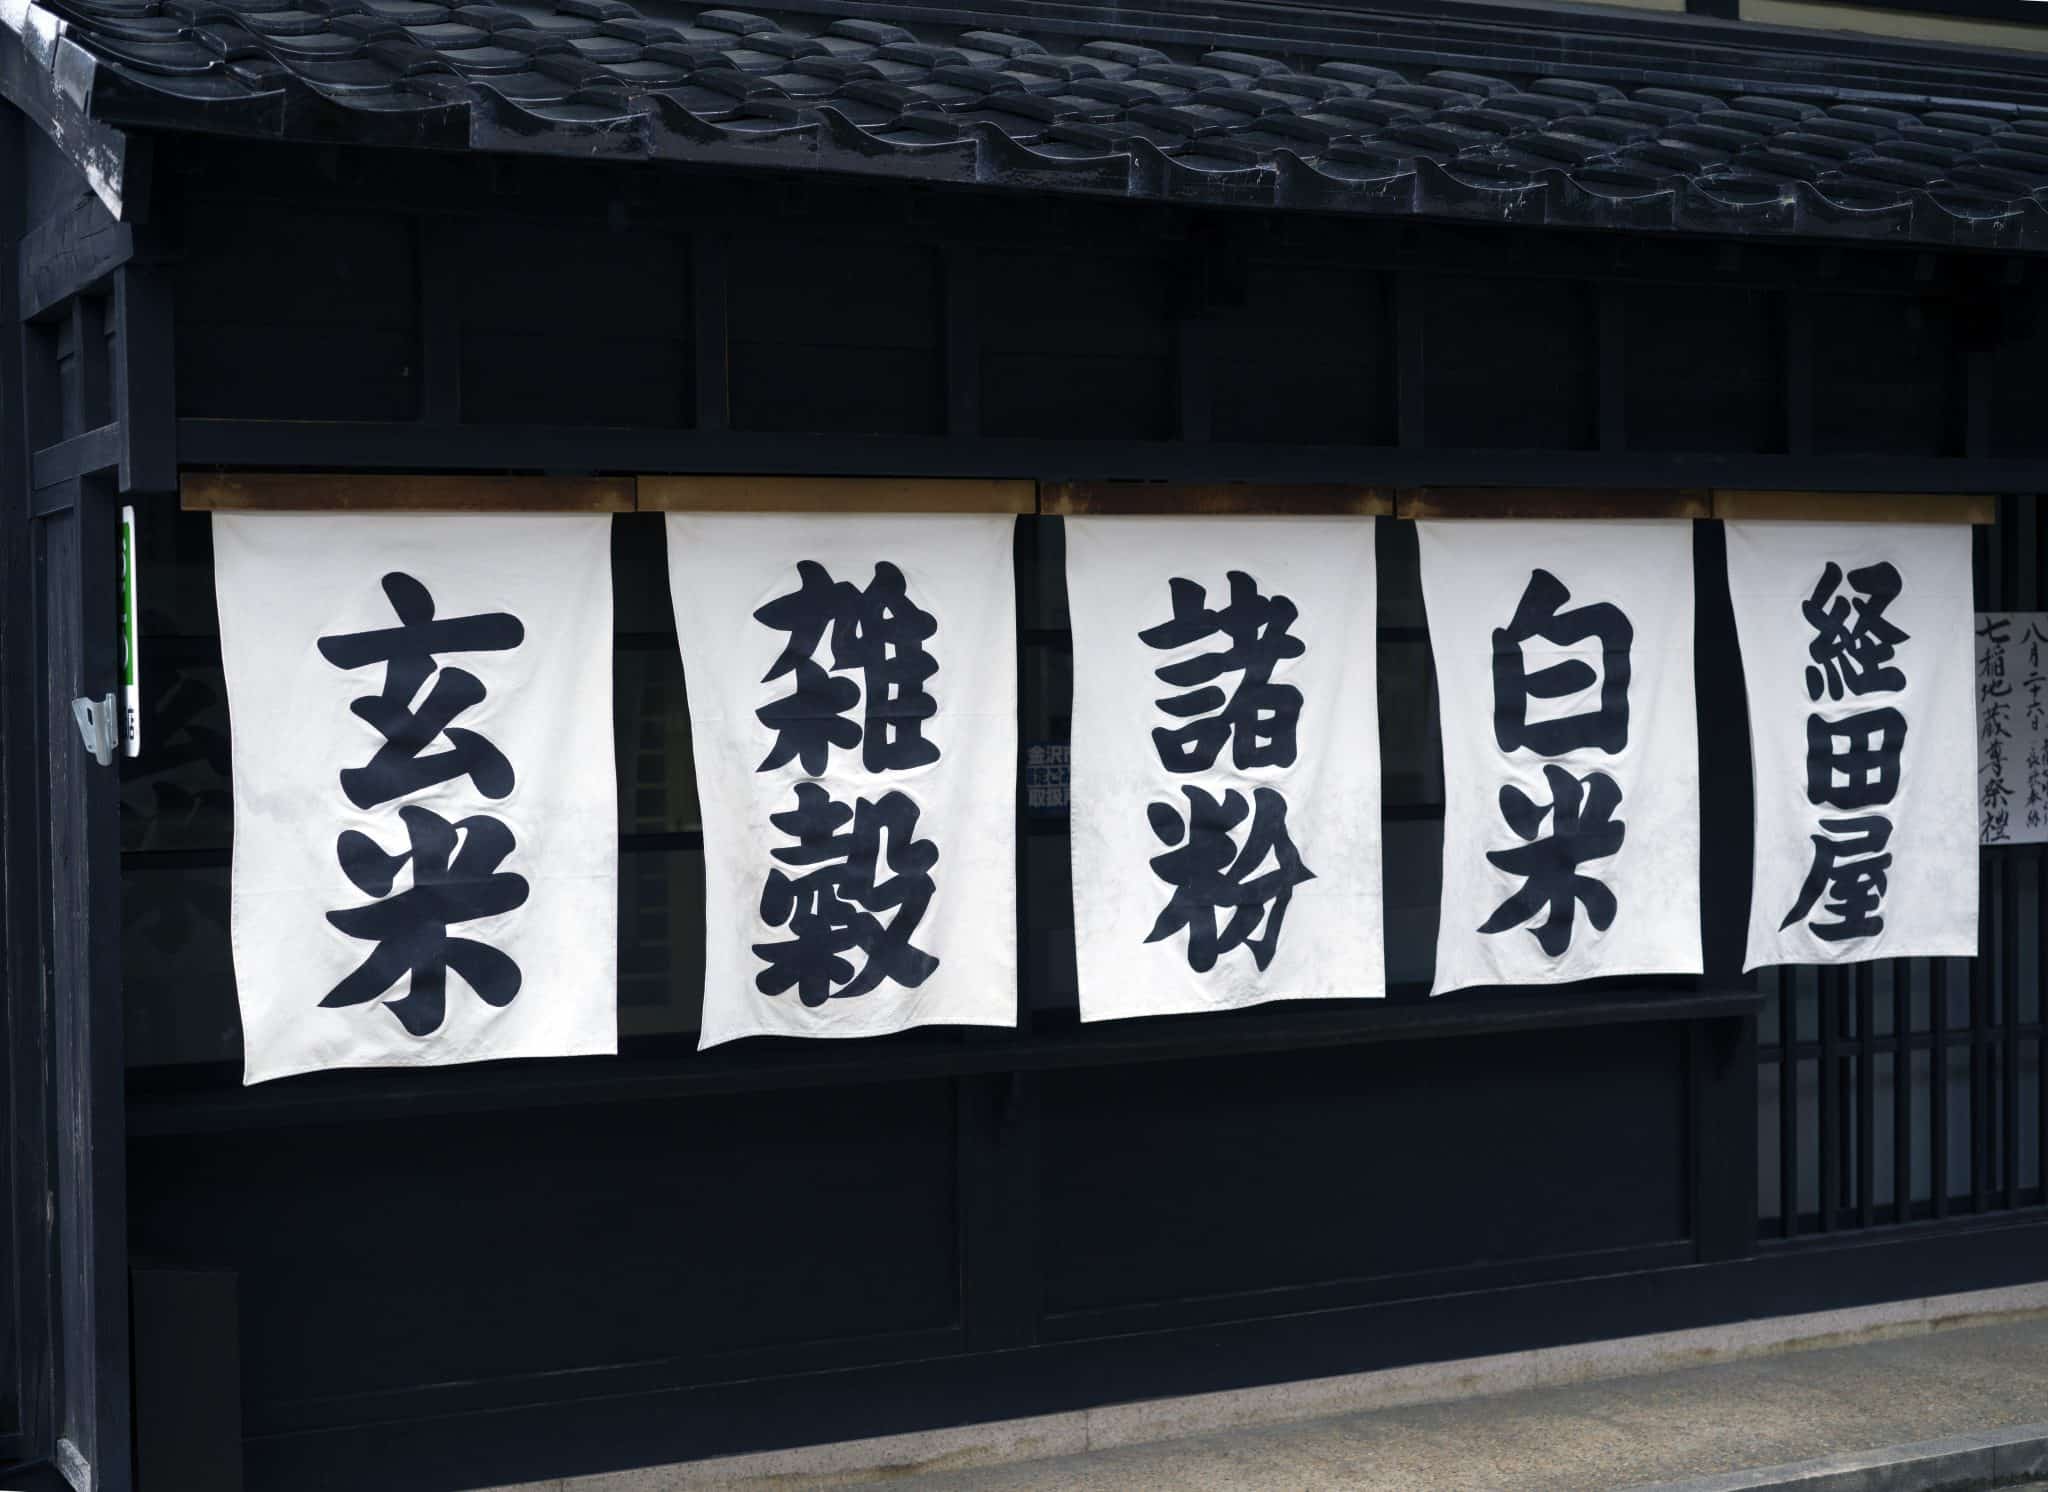 経田屋
白米
諸粉
雑穀
玄米
八月二十六日
七稲地蔵尊祭禮
金沢市
取扱